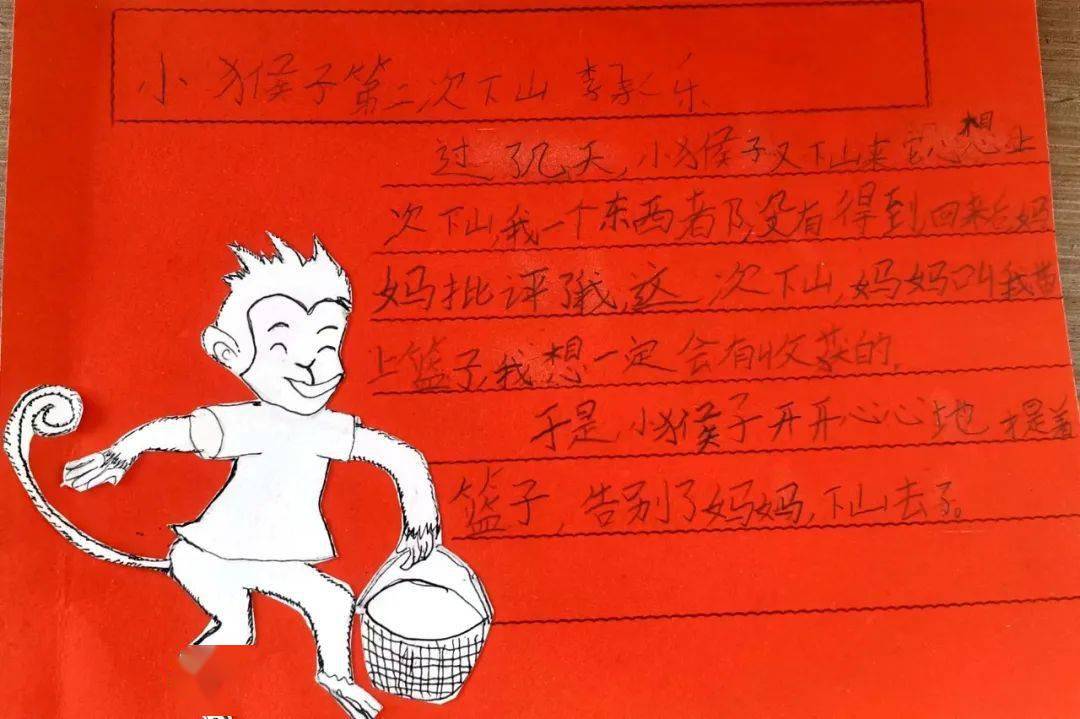 小猴子第二次下山 李 乐
过了几天,小猴子又下山来它心想上
次下山,我一个东西都没有得到回来台妈
妈批评了我,这一次下山,妈妈叫我带
上篮子,我想一定会有收获的。
于是,小猴子开开心心地提着
篮子,告别了妈妈,下山去了。